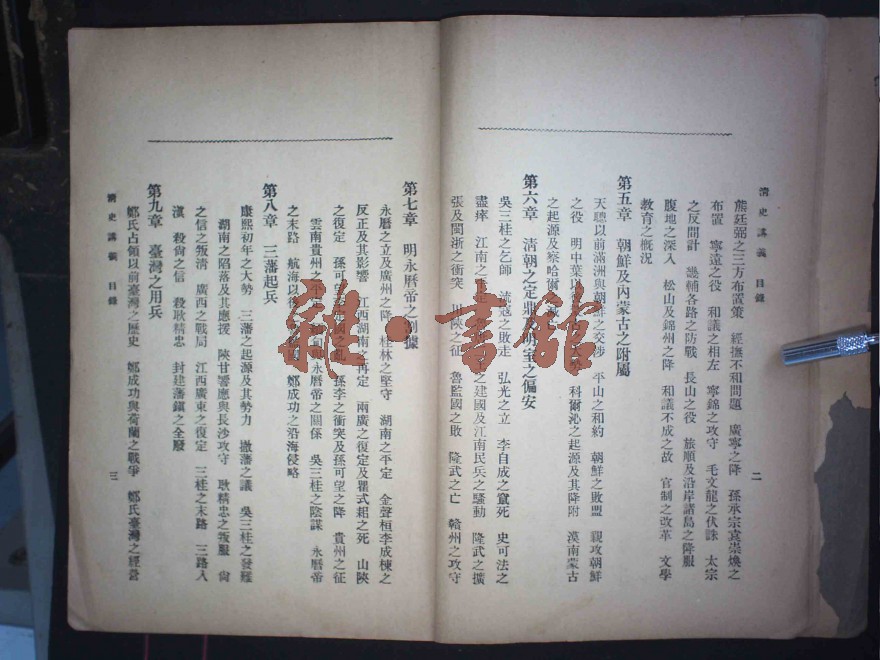 清史講義 目錄
二
熊廷弼之三方布置策 經撫不和問題 廣寧之降 孫承宗袁崇煥之
布置 寧遠之役 和議之相左 寧錦之攻守 毛文龍之伏誅 太宗
之反間計 畿輔各路之防戰 長山之役 旅順及沿岸諸島之降服
腹地之深入 松山及錦州之降 和議不成之故 官制之改革 文學
教育之概況
第五章 朝鮮及內蒙古之附屬
天聰以前滿洲與朝鮮之交涉 平山之和約 朝鮮之敗盟 親攻朝鮮
之役 明中葉以 科爾沁之起源及其降附 漠南蒙古
之起源及察哈爾
第六章 清朝之定鼎及明室之偏安
吳三桂之乞師 流寇之敗走 弘光之立 李自成之竄死 史可法之
盡瘁 江南之 之建國及江南民兵之騷動 隆武之擴
張及閩浙之衝突 川陝之征 魯監國之敗 隆武之亡 贛州之攻守
第七章 明永曆帝之割據
永曆之立及廣州之降 桂林之堅守 湖南之平定 金聲桓李成棟之
反正及其影響 江西湖南之再定 兩廣之復定及瞿式耜之死 山陝
之復定 孫可望 之亂 孫李之衝突及孫可望之降 貴州之征
雲南貴州之平 與永曆帝之關係 吳三桂之陰謀 永曆帝
之末路 航海以後 鄭成功之沿海侵略
第八章 三藩起兵
康熙初年之大勢 三藩之起源及其勢力 撤藩之議 吳三桂之發難
湖南之陷落及其應援 陝甘響應與長沙攻守 耿精忠之叛服 尙
之信之叛清 廣西之戰局 江西廣東之復定 三桂之末路 三路入
滇 殺尙之信 殺耿精忠 封建藩鎭之全廢
第九章 臺灣之用兵
鄭氏占領以前臺灣之歷史 鄭成功與荷蘭之戰爭 鄭氏臺灣之經營
清史講義 目錄
三
雜·書館